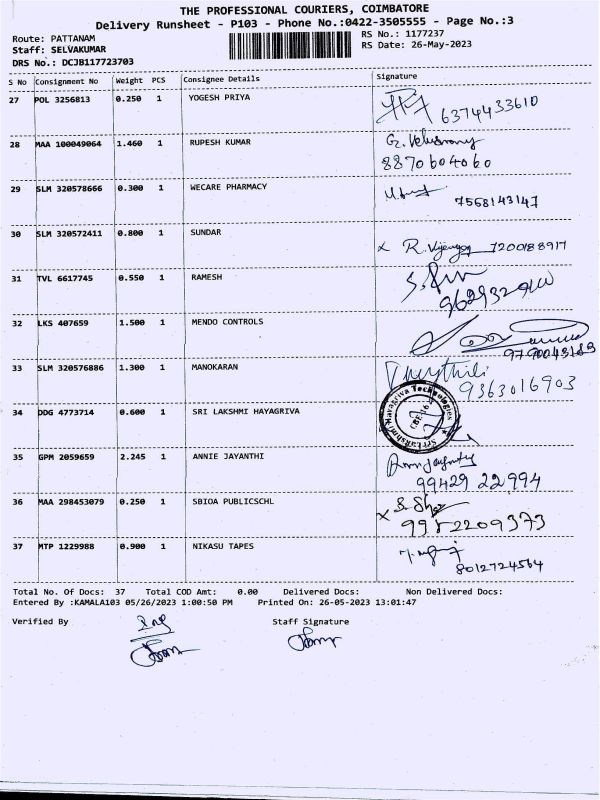 THE PROFESSIONAL COURIERS, COIMBATORE
Delivery Runsheet - P103 - Phone No.:0422-3505555 - Page No.:3
Route: PATTANAM
RS No.: 1177237
Staff: SELVAKUMAR
RS Date: 26-May-2023
DRS No.: DCJB117723703
S No Consignment No Weight PCS Consignee Details Signature
27 POL 3256813 0.250 1 YOGESH PRIYA
6374433610
28 MAA 100049064 1.460 1 RUPESH KUMAR
8870604060
29 SLM 320578666 0.300 1 WECARE PHARMACY
7568143147
30 SLM 320572411 0.800 1 SUNDAR
x R. 7200188917
31 TVL 6617745 0.550 1 RAMESH
32 LKS 407659 1.500 1 MENDO CONTROLS
33 SLM 320576886 1.300 1 MANOKARAN
9363016903
34 DDG 4773714 0.600 1 SRI LAKSHMI HAYAGRIVA
Sri Lakshmi Hayagriva Technologies
35 GPM 2059659 2.245 1 ANNIE JAYANTHI
99429 22994
36 MAA 298453079 0.250 1 SBIOA PUBLICSCHL
37 MTP 1229988 0.900 1 NIKASU TAPES
8012724564
Total No. Of Docs: 37 Total COD Amt: 0.00 Delivered Docs: Non Delivered Docs:
Entered By :KAMALA103 05/26/2023 1:00:50 PM Printed On: 26-05-2023 13:01:47
Verified By Staff Signature